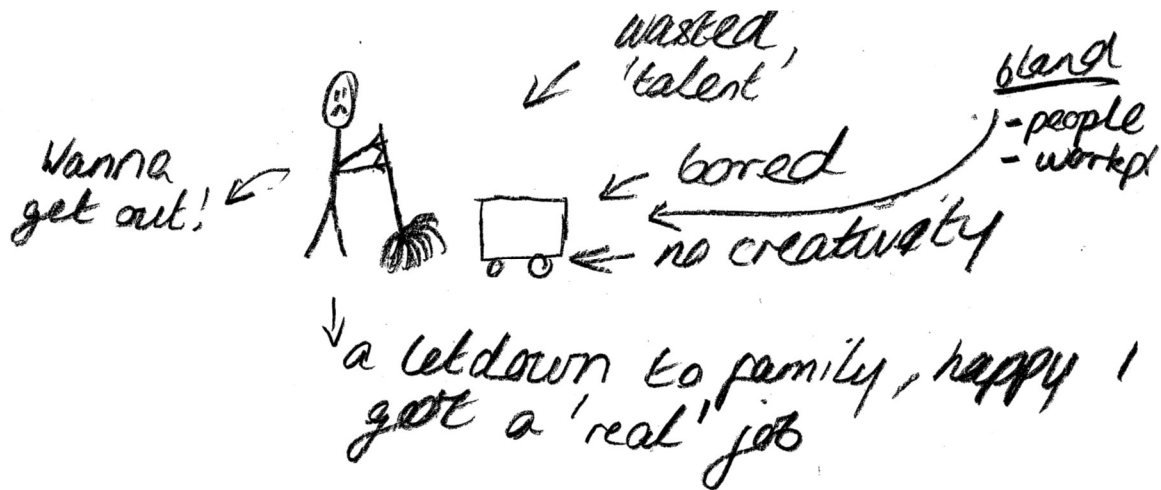 wasted,
'talent'
bland
- people
-
Wanna
get out!
bored
no creativity
a letdown to family, happy I
got a 'real' job